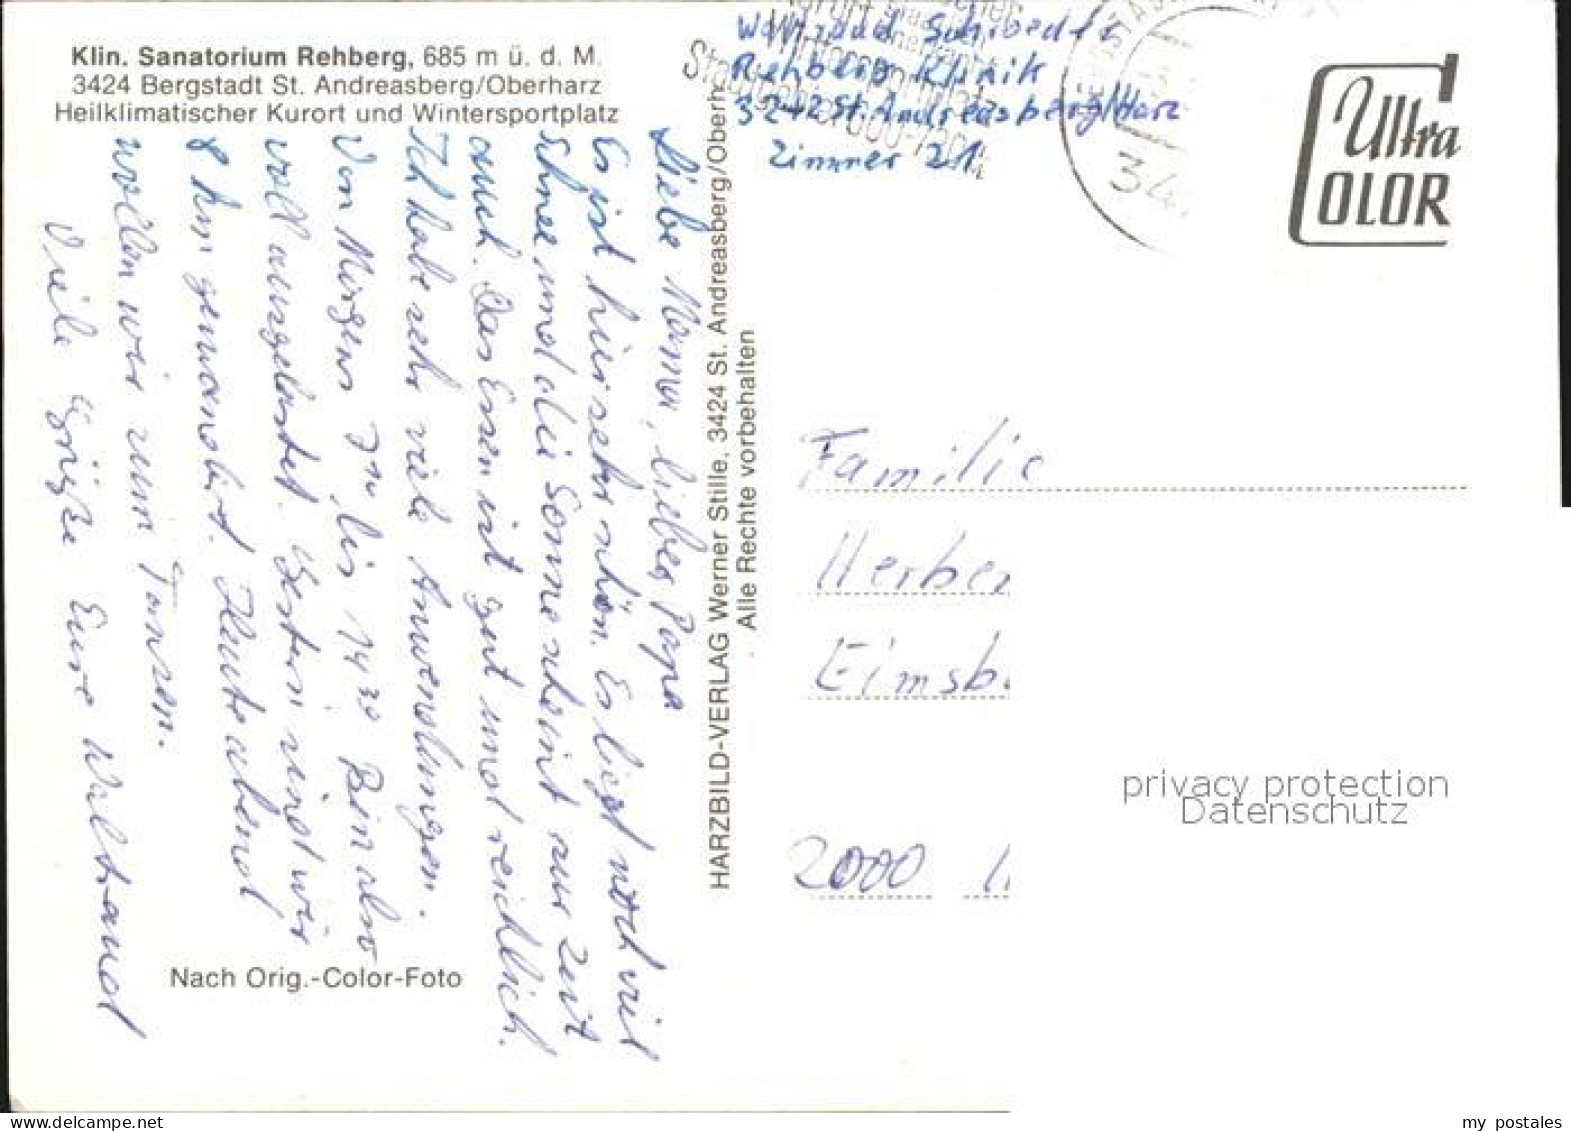 Klin. Sanatorium Rehberg, 685 m ü. d. M.
3424 Bergstadt St. Andreasberg/Oberharz
Heilklimatischer Kurort und Wintersportplatz
Liebe Mama, lieber Papa
Es ist hier sehr schön. Es liegt noch viel
Schnee und die Sonne scheint zur Zeit
auch. Das Essen ist gut und reichlich.
Ich habe sehr viele Anwendungen.
Von Morgens 7 bis 14 30 Bin also
voll ausgelastet. Gestern sind wir
8 km gewandert. Heute abend
wollen wir zum Tanzen.
Viele Grüße Eure Waltraud
Nach Orig.-Color-Foto
HARZBILD-VERLAG Werner Stille, 3424 St. Andreasberg/Oberh
Alle Rechte vorbehalten
Waltraud
Rehberg Klinik
3242 St. Andreasberg/Harz
Zimmer 21
34
Ultra
COLOR
Familie
Herber
Eimsb
2000
privacy protection
Datenschutz
my_postales